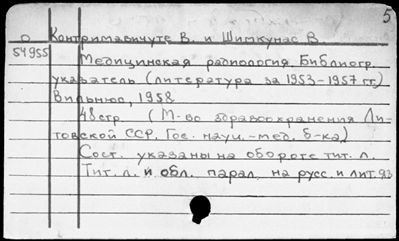 5
0 Контримавичуте В. и Шимкунас В.
54955 Медицинская радиология. Библиогр.
указатель (литература за 1953-1957 гг.)
Вильнюс, 1958
48 стр. (М-во здравоохранения Ли-
товской ССР. Гос. науч.-мед. б-ка)
Сост. указаны на обороте тит. л.
Тит. л. и обл. парал. на русс. и лит. яз